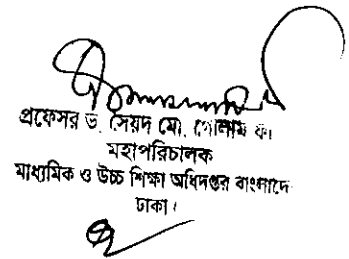 প্রফেসর ড. সৈয়দ মো. গোলাম ফা
মহাপরিচালক
মাধ্যমিক ও উচ্চ শিক্ষা অধিদপ্তর বাংলাদে
ঢাকা।